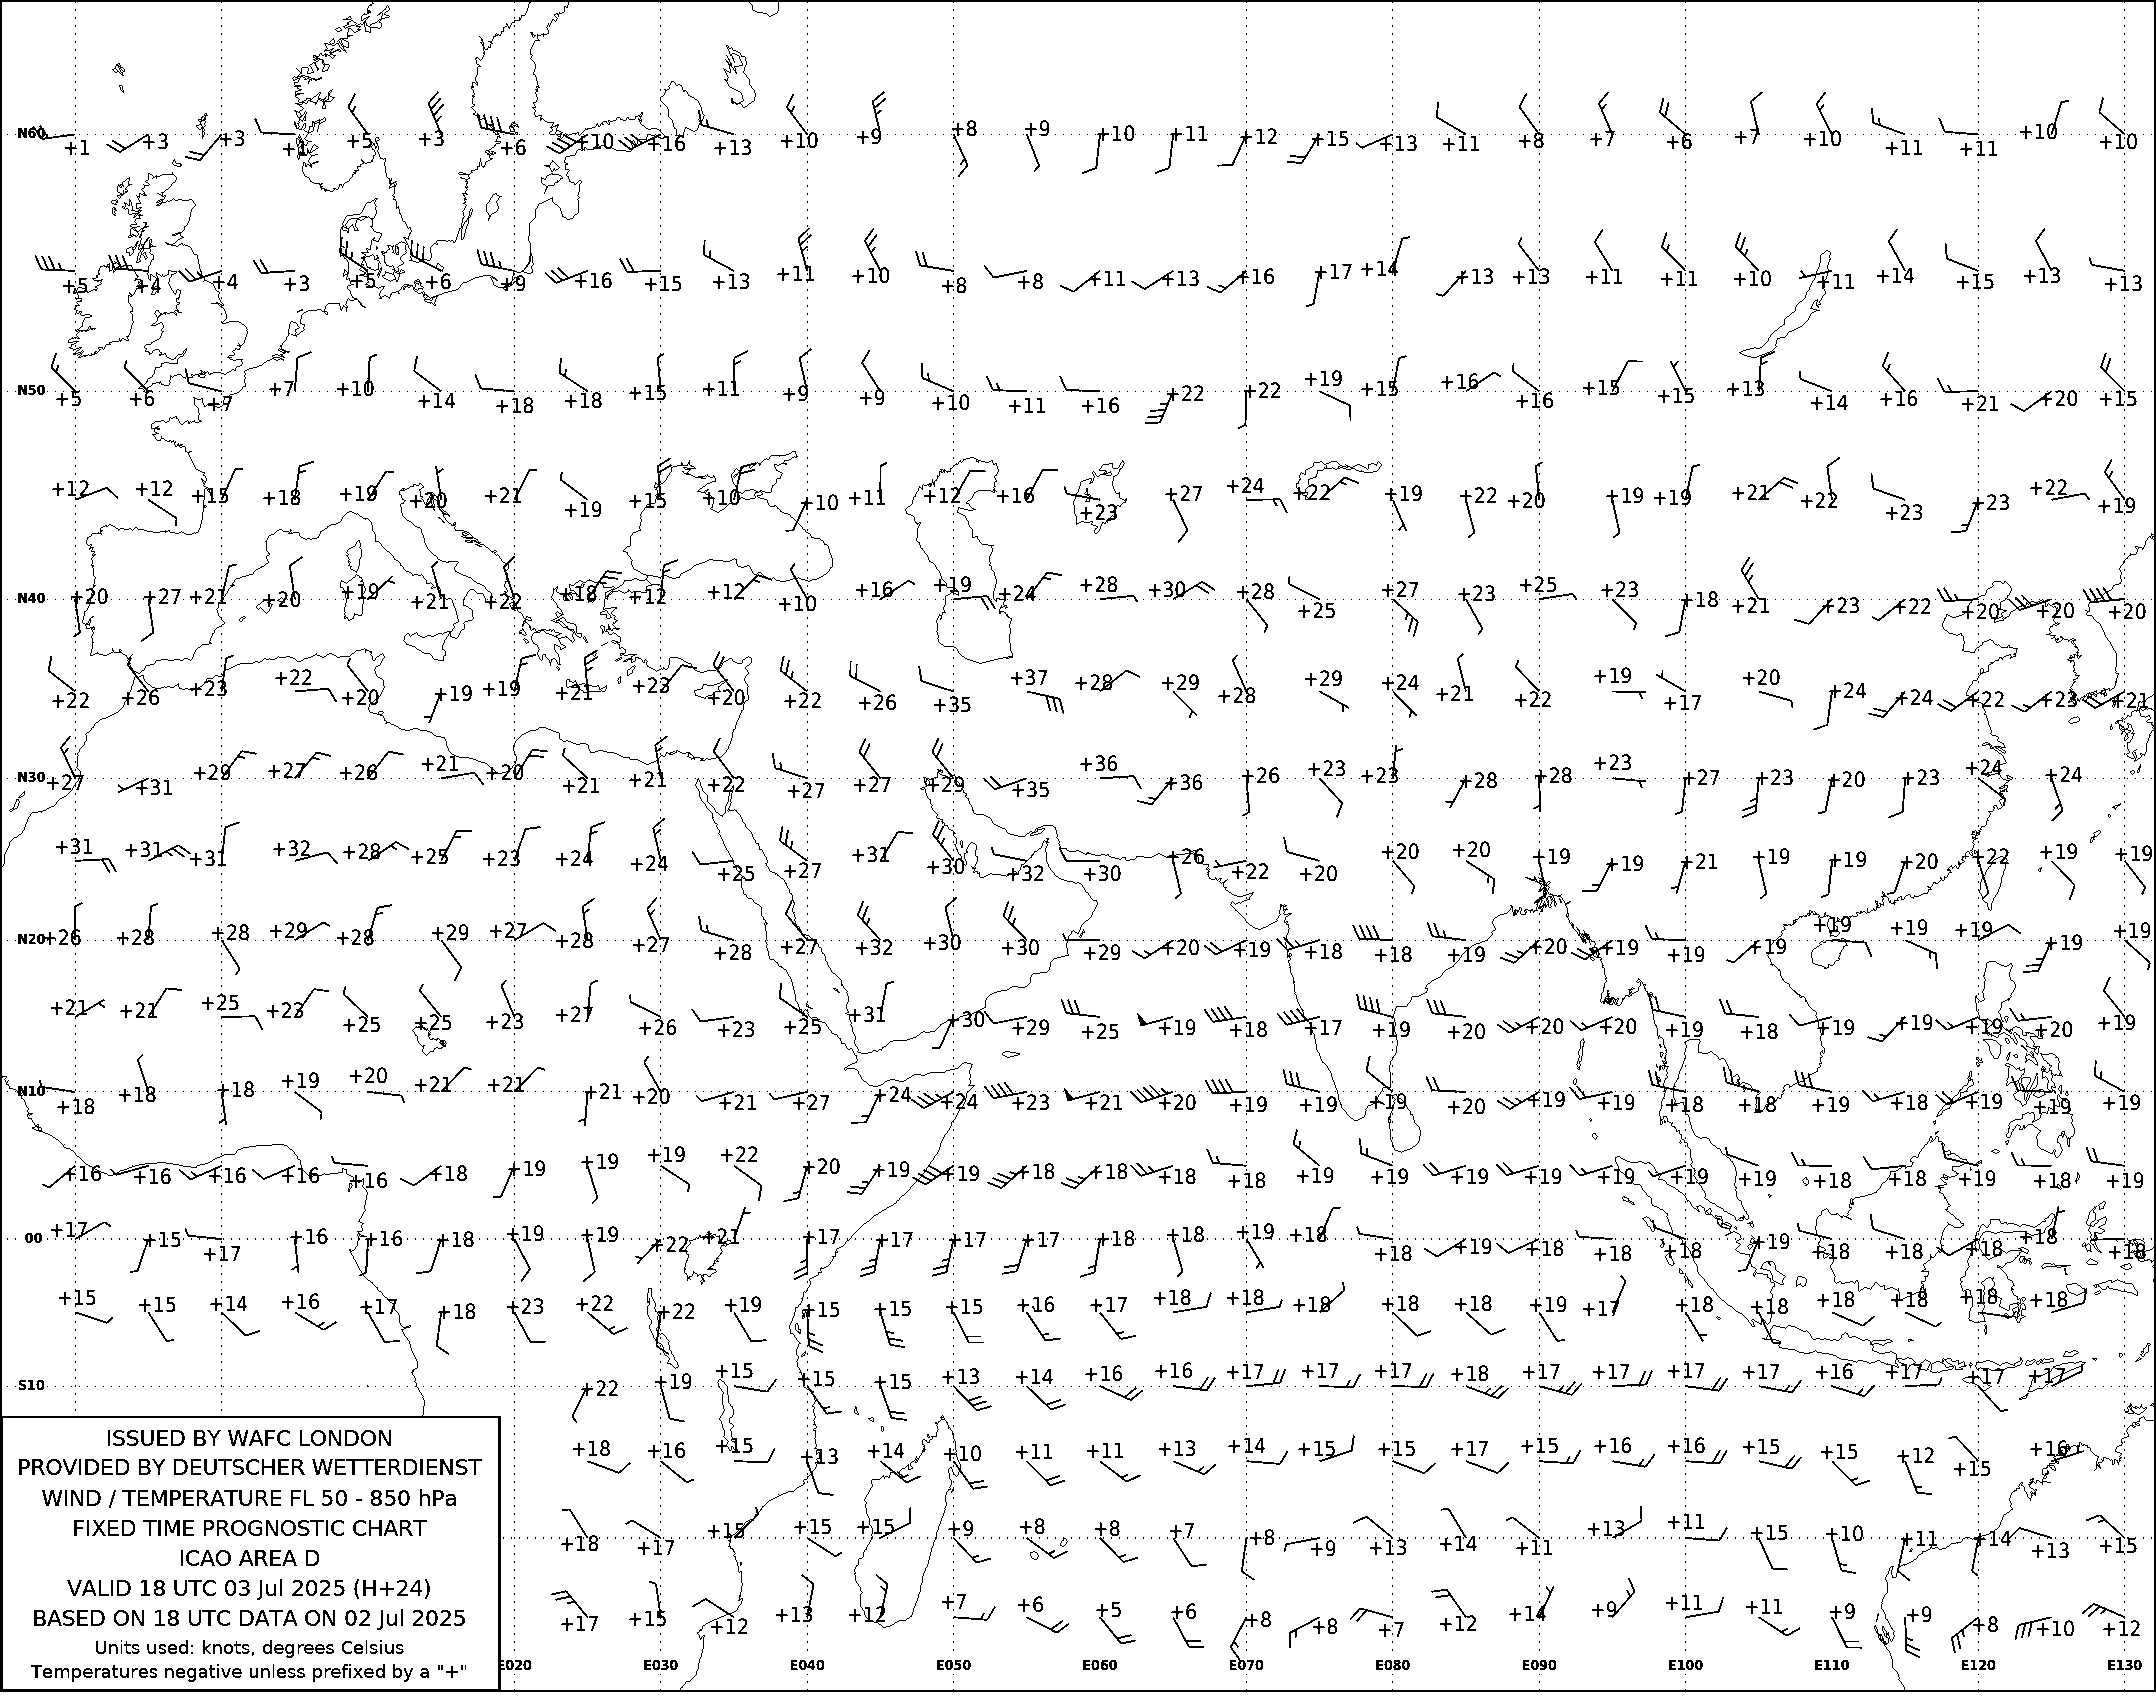 N60 +1 +3 +3 +1 +5 +3 +6 +10 +16 +13 +10 +9 +8 +9 +10 +11 +12 +15 +13 +11 +8 +7 +6 +7 +10 +11 +11 +10 +10
+5 +4 +4 +3 +5 +6 +9 +16 +15 +13 +11 +10 +8 +8 +11 +13 +16 +17 +14 +13 +13 +11 +11 +10 +11 +14 +15 +13 +13
N50 +5 +6 +7 +7 +10 +14 +18 +18 +15 +11 +9 +9 +10 +11 +16 +22 +22 +19 +15 +16 +16 +15 +15 +13 +14 +16 +21 +20 +15
+12 +12 +15 +18 +19 +20 +21 +19 +15 +10 +10 +11 +12 +16 +23 +27 +24 +22 +19 +22 +20 +19 +19 +21 +22 +23 +23 +22 +19
N40 +20 +27 +21 +20 +19 +21 +22 +18 +12 +12 +10 +16 +19 +24 +28 +30 +28 +25 +27 +23 +25 +23 +18 +21 +23 +22 +20 +20 +20
+22 +26 +23 +22 +20 +19 +19 +21 +23 +20 +22 +26 +35 +37 +28 +29 +28 +29 +24 +21 +22 +19 +17 +20 +24 +24 +22 +23 +21
N30 +27 +31 +29 +27 +26 +21 +20 +21 +21 +22 +27 +27 +29 +35 +36 +36 +26 +23 +23 +28 +28 +23 +27 +23 +20 +23 +24 +24
+31 +31 +31 +32 +28 +25 +23 +24 +24 +25 +27 +31 +30 +32 +30 +26 +22 +20 +20 +20 +19 +19 +21 +19 +19 +20 +22 +19 +19
N20 +26 +28 +28 +29 +28 +29 +27 +28 +27 +28 +27 +32 +30 +30 +29 +20 +19 +18 +18 +19 +20 +19 +19 +19 +19 +19 +19 +19 +19
+21 +21 +25 +23 +25 +25 +23 +27 +26 +23 +25 +31 +30 +29 +25 +19 +18 +17 +19 +20 +20 +20 +19 +18 +19 +19 +19 +20 +19
N10 +18 +18 +18 +19 +20 +21 +21 +21 +20 +21 +27 +24 +24 +23 +21 +20 +19 +19 +19 +20 +19 +19 +18 +18 +19 +18 +19 +19 +19
+16 +16 +16 +16 +16 +18 +19 +19 +19 +22 +20 +19 +19 +18 +18 +18 +18 +19 +19 +19 +19 +19 +19 +19 +18 +18 +19 +18 +19
00 +17 +15 +17 +16 +16 +18 +19 +19 +22 +21 +17 +17 +17 +17 +18 +18 +19 +18 +18 +19 +18 +18 +18 +19 +18 +18 +18 +18 +18
+15 +15 +14 +16 +17 +18 +23 +22 +22 +19 +15 +15 +15 +16 +17 +18 +18 +18 +18 +18 +19 +17 +18 +18 +18 +18 +18 +18
S10 +22 +19 +15 +15 +15 +13 +14 +16 +16 +17 +17 +17 +18 +17 +17 +17 +17 +16 +17 +17 +17
+18 +16 +15 +13 +14 +10 +11 +11 +13 +14 +15 +15 +17 +15 +16 +16 +15 +15 +12 +15 +16
+18 +17 +15 +15 +15 +9 +8 +8 +7 +8 +9 +13 +14 +11 +13 +11 +15 +10 +11 +14 +13 +15
+17 +15 +12 +13 +12 +7 +6 +5 +6 +8 +8 +7 +12 +14 +9 +11 +11 +9 +9 +8 +10 +12
E020 E030 E040 E050 E060 E070 E080 E090 E100 E110 E120 E130
ISSUED BY WAFC LONDON
PROVIDED BY DEUTSCHER WETTERDIENST
WIND / TEMPERATURE FL 50 - 850 hPa
FIXED TIME PROGNOSTIC CHART
ICAO AREA D
VALID 18 UTC 03 Jul 2025 (H+24)
BASED ON 18 UTC DATA ON 02 Jul 2025
Units used: knots, degrees Celsius
Temperatures negative unless prefixed by a "+"